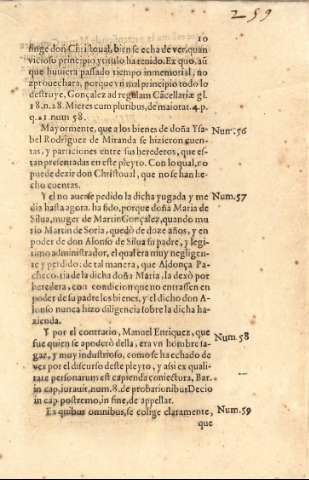 259
10
finge don Christoual, bien se echa de ver, quan
vicioso principio y titulo ha tenido. Ex quo, aũ
que huuiera passado tiempo inmemorial, no
aprouechara, porque vn mal principio todo lo
destruye. Gonçalez ad regulam Cãcellariæ gl.
18. n. 28. Mieres cum pluribus, de maiorat. 4. p.
q. 21 num 58.
Mayormente, que a los bienes de doña Ysa- Num. 56
bel Rodriguez de Miranda se hizieron cuen-
tas, y particiones entre sus herederos, que es-
tan presentadas en este pleyto. Con lo qual, no
puede dezir don Christoual, que no se han he-
cho cuentas.
Y el no auerse pedido la dicha yugada y me Num. 57
dia hasta agora, ha sido, porque doña Maria de
Silua, muger de Martin Gonçalez, quando mu
rio Martin de Soria, quedò de doze años, y en
poder de don Alonso de Silua su padre, y legi-
timo administrador, el qual era muy negligen-
te y perdido: de tal manera, que Aldonça Pa-
checo, tia de la dicha doña Maria, la dexò por
heredera, con condicion que no entrassen en
poder de su padre los bienes, y el dicho don A-
lonso nunca hizo diligencia sobre la dicha ha-
zienda.
Y por el contrario, Manuel Enriquez, que Num. 58
fue quien se apoderò della, era vn hombre sa-
gaz, y muy industrioso, como se ha echado de
ver por el discurso deste pleyto, y assi ex quali-
tate personarum est capienda coniectura, Bar.
in cap. iurauit, num. 8. de probarionibus Decio
in cap. postremo, in fine, de appellat.
Ex quibus omnibus, se colige claramente, Num. 59
que